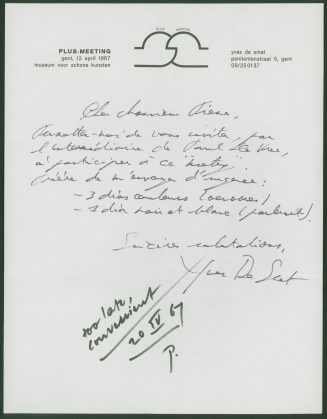 PLUS MEETING
PLUS-MEETING
gent, 12 april 1967
museum voor schone kunsten
yves de smet
penitentenstraat 5, gent
09/250137
Cher monsieur
Permettez-moi de vous inviter, par
l'intermédiaire de Paul De Vree,
à participer à ce "meeting".
Prière de m'envoyer d'urgence:
- 3 dias couleurs (oeuvres)
- 1 dia noir et blanc (portrait).
Sincères salutations,
Yves De Smet
too late,
20 IV 67
P.